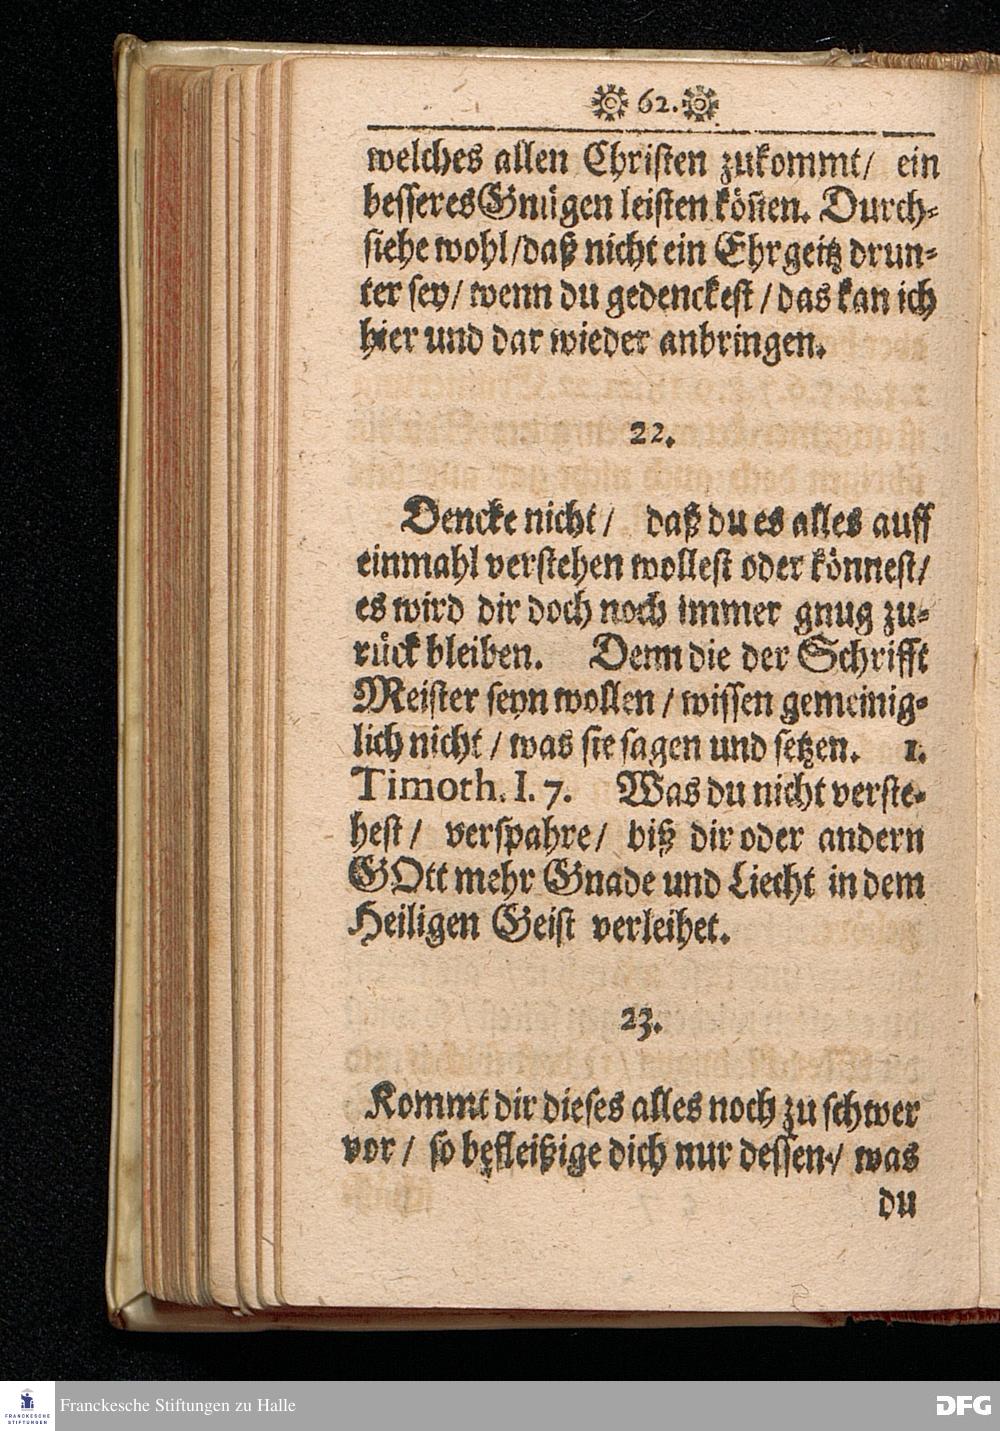 62.
welches allen Christen zukommt/ ein
besseres Gnügen leisten köñen. Durch-
siehe wohl/daß nicht ein Ehrgeitz drun-
ter sey/ wenn du gedenckest /das kan ich
hier und dar wieder anbringen.
22.
Dencke nicht/ daß du es alles auff
einmahl verstehen wollest oder könnest/
es wird dir doch noch immer gnug zu-
rück bleiben. Denn die der Schrifft
Meister seyn wollen / wissen gemeinig-
lich nicht / was sie sagen und setzen. 1.
Timoth. I. 7. Was du nicht verste-
hest/ verspahre/ biß dir oder andern
GOtt mehr Gnade und Liecht in dem
Heiligen Geist verleihet.
23.
Kommt dir dieses alles noch zu schwer
vor / so befleißige dich nur dessen/ was
du
FRANCKESCHE
STIFTUNGEN
Franckesche Stiftungen zu Halle
DFG